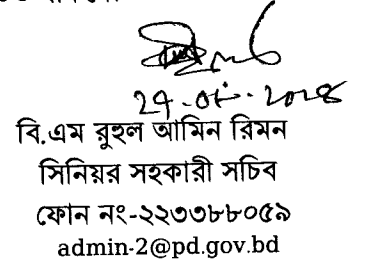 বি.এম রুহুল আমিন রিমন
সিনিয়র সহকারী সচিব
ফোন নং-২২৩৩৮৮০৫৯
admin-2@pd.gov.bd